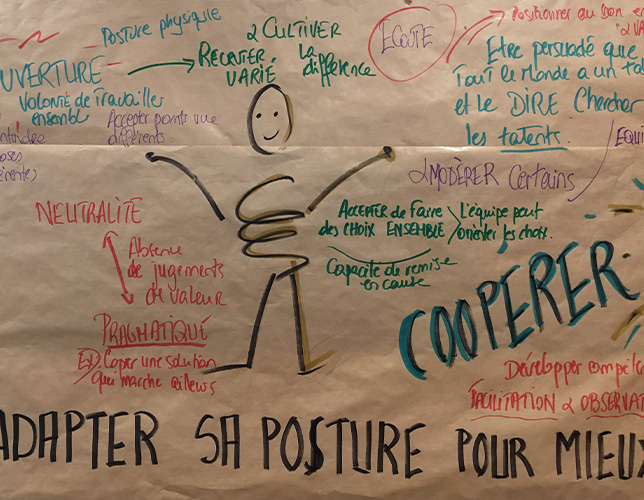 Posture physique
OUVERTURE
Volonté de Travailler
ensemble
Accepter points vue
différents
RECRUTER
VARIÉ
& CULTIVER
la
différence
ECOUTE
Positionner au bon
Etre persuadé que
Tout le Monde a un
et Le DIRE Chercher
les talents.
& MODÈRER Certains
NEUTRALITÉ
Absence
de jugements
de valeur
PRAGMATIQUE
Ex) Copier une solution
qui marche ailleurs
ACCEPTER de Faire
des CHOIX ENSEMBLE
L'équipe peut
orienter les choix.
Capacité de remise
en cause
COOPÉRER.
Développer
FACILITATION &
ADAPTER SA POSTURE POUR MIEUX